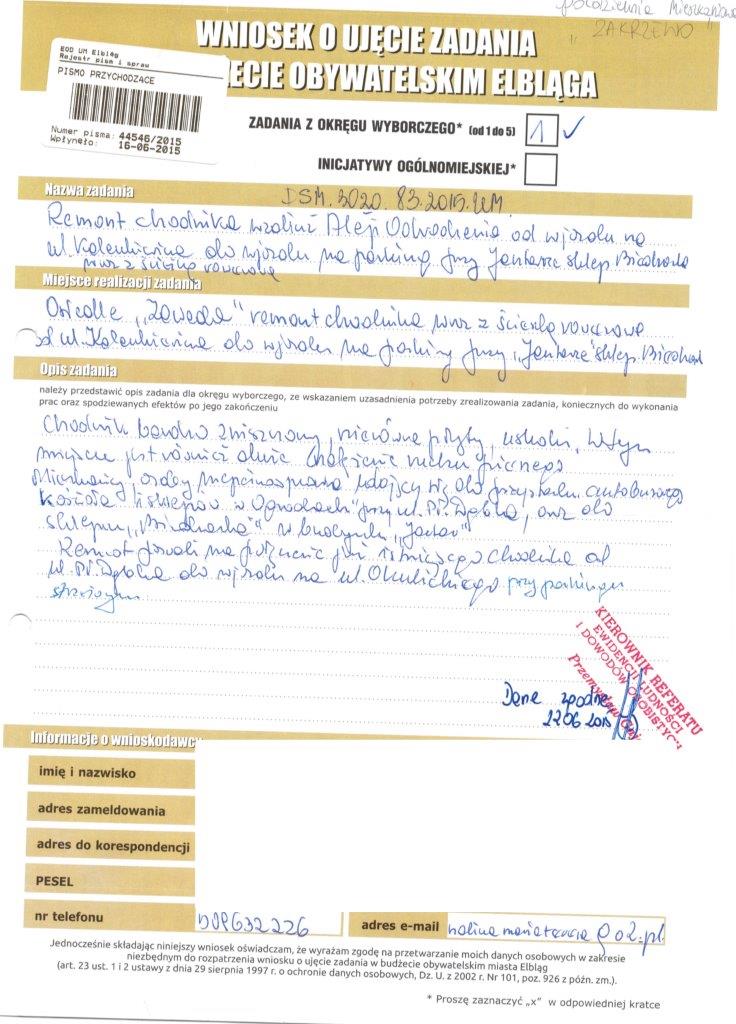 Spółdzielnia Mieszkaniowa
"ZAKRZEWO"
WNIOSEK O UJĘCIE ZADANIA
ECIE OBYWATELSKIM ELBLĄGA
EOD UM Elbląg
Rejestr pism i spraw
PISMO PRZYCHODZĄCE
Numer pisma: 44546/2015
Wpłynęło: 16-06-2015
ZADANIA Z OKRĘGU WYBORCZEGO* (od 1 do 5) 1 ✓
INICJATYWY OGÓLNOMIEJSKIEJ*
Nazwa zadania
DSM. 3020. 83.2015.UM
Remont chodnika wzdłuż Aleji Odrodzenia od wjazdu na
ul. Kalenkiewicza do wjazdu na parking przy Jantarze sklep Biedronka
wraz z ścieżką rowerową
Miejsce realizacji zadania
Osiedle „Zawada" remont chodnika wraz z ścieżką rowerową
od ul. Kalenkiewicza do wjazdu na parking przy „Jantarze" sklep. Biedronka
Opis zadania
należy przedstawić opis zadania dla okręgu wyborczego, ze wskazaniem uzasadnienia potrzeby zrealizowania zadania, koniecznych do wykonania
prac oraz spodziewanych efektów po jego zakończeniu
Chodnik bardzo zniszczony, nierówne płyty, uskoki, W tym
miejscu jest również duże natężenie ruchu pieszego
Mieszkańcy, osoby niepełnosprawne udający się do przystanku autobusowego
Kościoła i sklepów w Ogrodach" przy ul. Pł. Dąbka, oraz do
sklepu „Biedronka" w budynku „Jantar"
Remont pozwoli na połączenie już istniejącego chodnika od
ul. Pł. Dąbka do wjazdu na ul. Okulickiego przy parkingu
strzeżonym
KIEROWNIK REFERATU
EWIDENCJI LUDNOŚCI
I DOWODÓW OSOBISTYCH
Dane zgodne
22 06 2015
Informacje o wnioskodawcy
imię i nazwisko
adres zameldowania
adres do korespondencji
PESEL
nr telefonu
632226
adres e-mail
o2.pl
Jednocześnie składając niniejszy wniosek oświadczam, że wyrażam zgodę na przetwarzanie moich danych osobowych w zakresie
niezbędnym do rozpatrzenia wniosku o ujęcie zadania w budżecie obywatelskim miasta Elbląg
(art. 23 ust. 1 i 2 ustawy z dnia 29 sierpnia 1997 r. o ochronie danych osobowych, Dz. U. z 2002 r. Nr 101, poz. 926 z późn. zm.).
* Proszę zaznaczyć „x" w odpowiedniej kratce